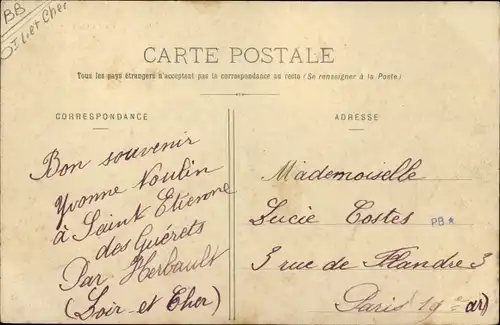 BB
Loir et Cher
CARTE POSTALE
Tous les pays étrangers n'acceptent pas la correspondance au recto (Se renseigner à la Poste)
CORRESPONDANCE
Bon souvenir
Yvonne Voulin
à Saint Etienne
des Guérets
Par Herbault
(Loir et Cher)
ADRESSE
Mademoiselle
Lucie Costes
PB*
3 rue de Flandre 3
Paris 19e ar)